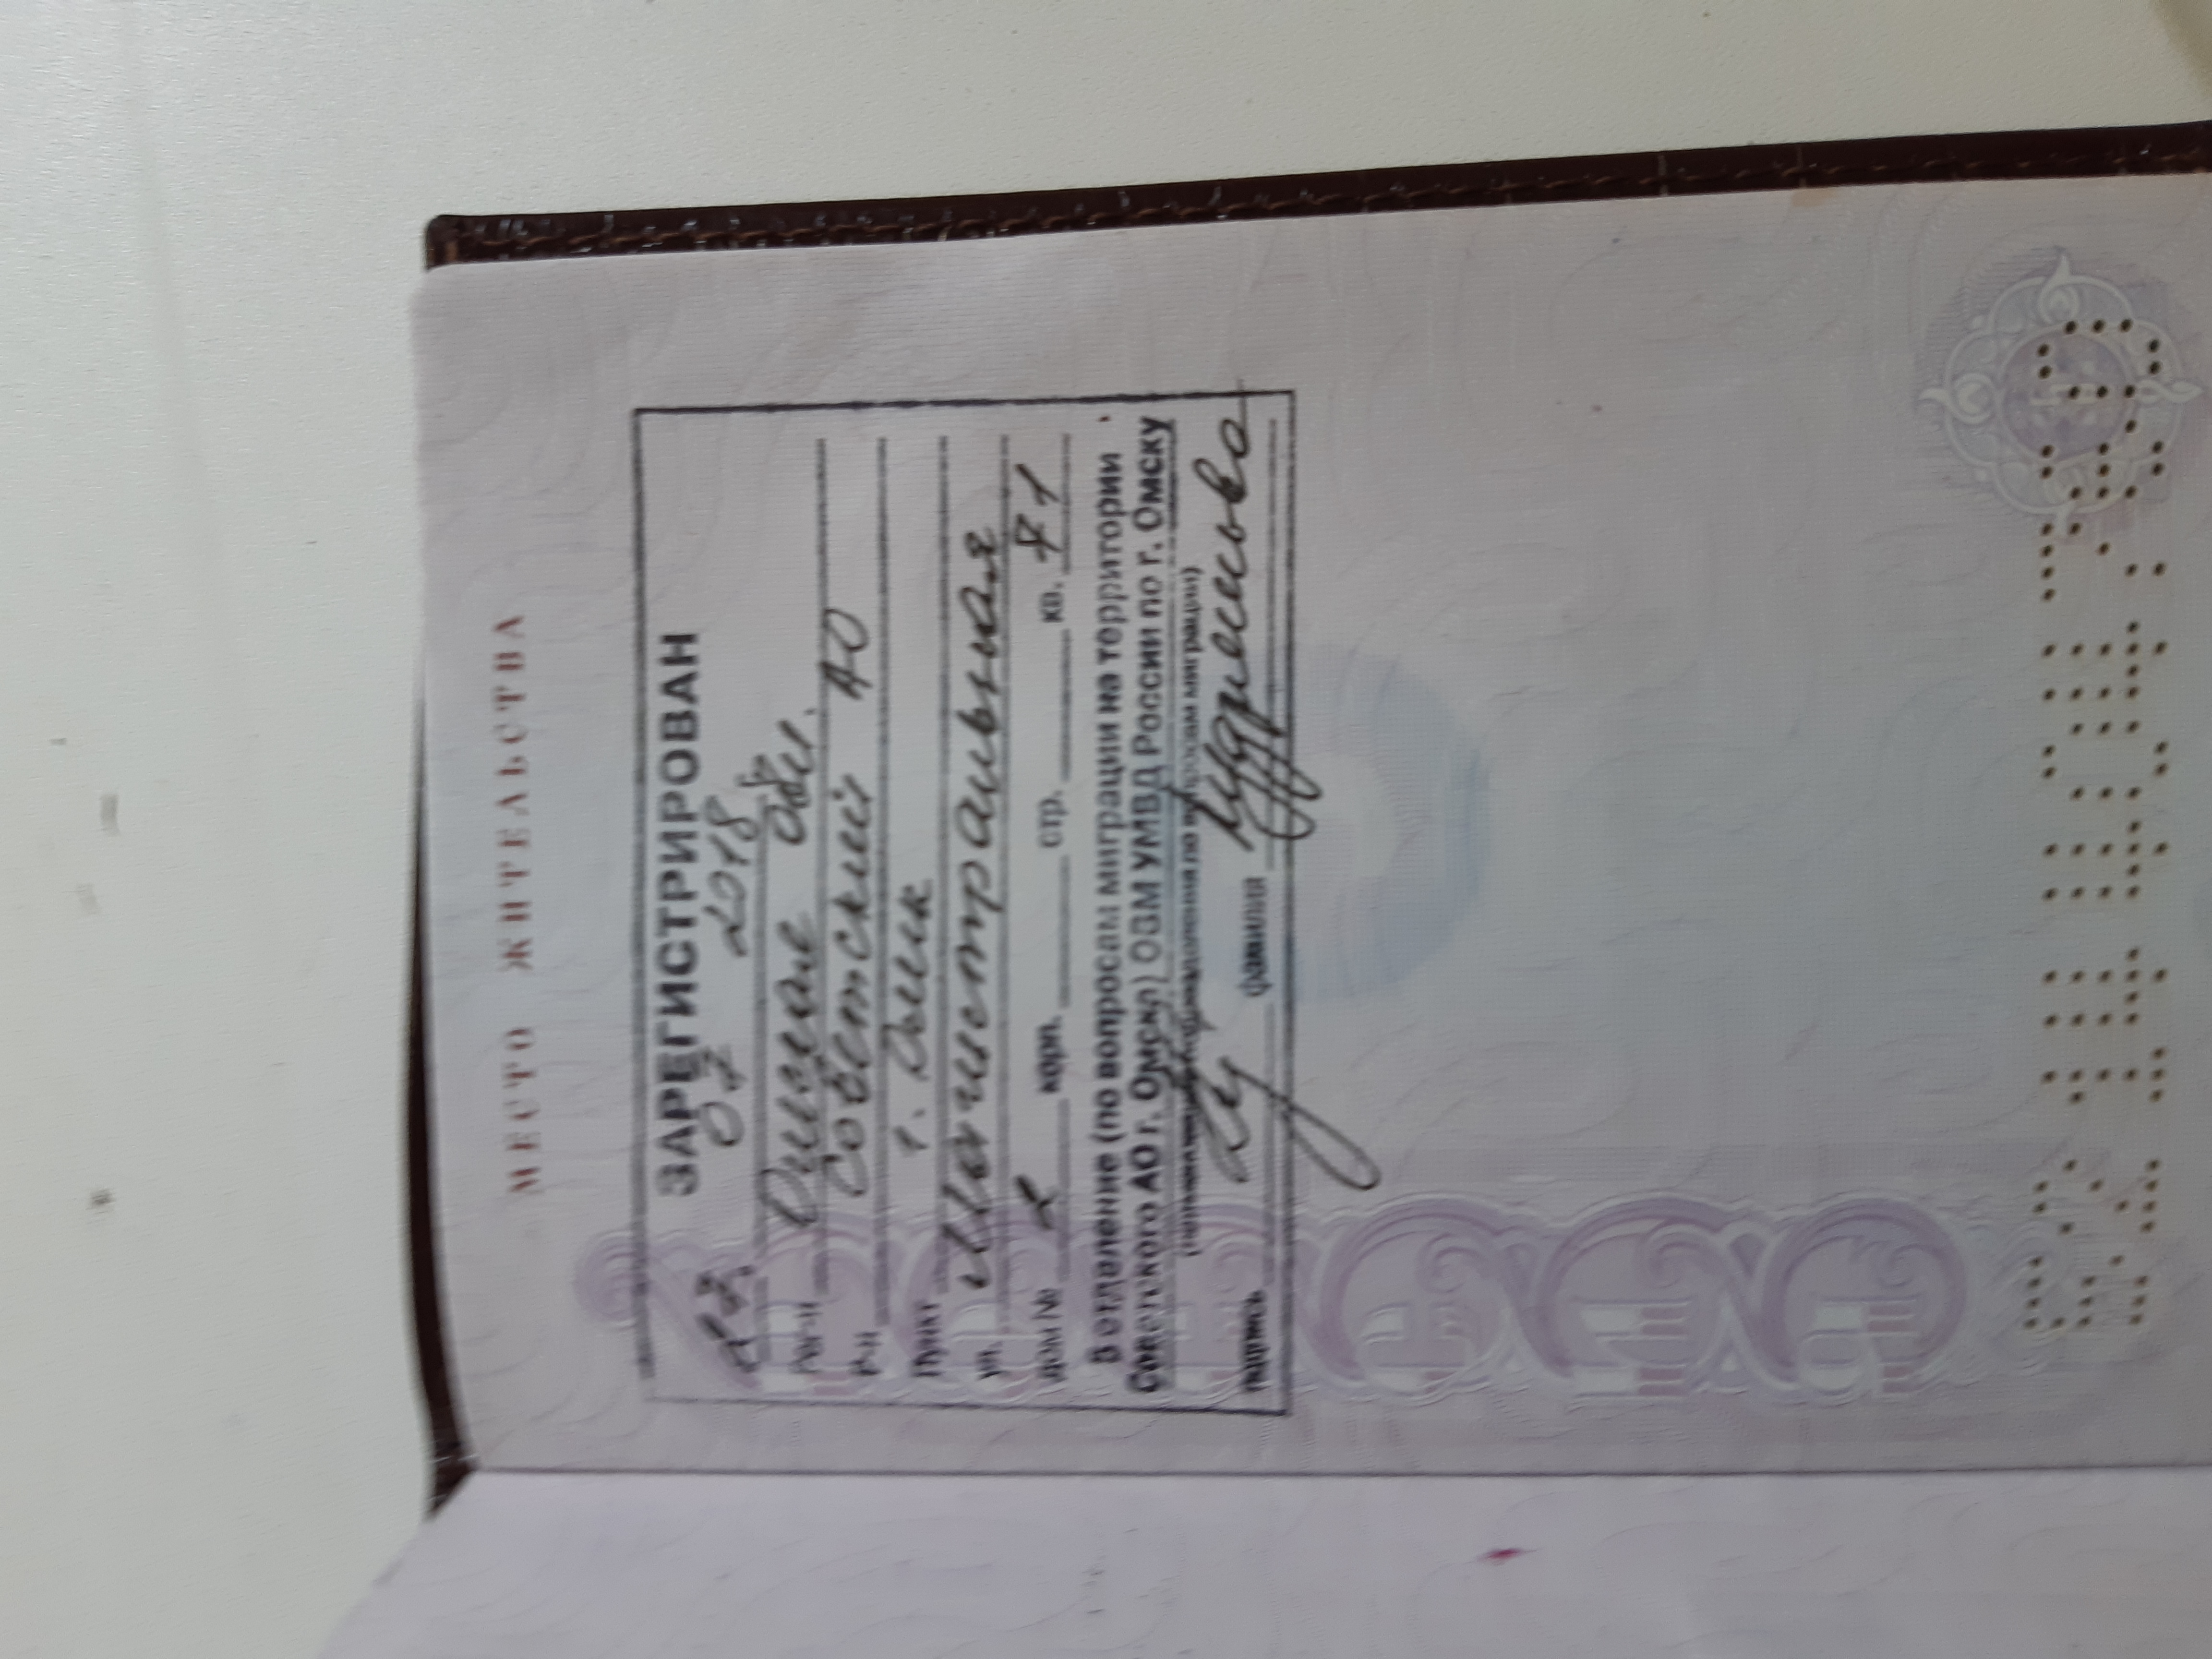 МЕСТО ЖИТЕЛЬСТВА
ЗАРЕГИСТРИРОВАН
27 07 2018 г.
Рег-н Омская обл.
Р-н Советский АО
Пункт г. Омск
ул. Магистральная
дом № 2 корп. стр. кв. 71
5 отделение (по вопросам миграции на территории
Советского АО г. Омска) ОВМ УМВД России по г. Омску
(наименование подразделения по вопросам миграции)
подпись фамилия
52 14